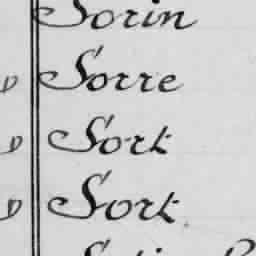 Sorin
Sorre
Sork
Sork